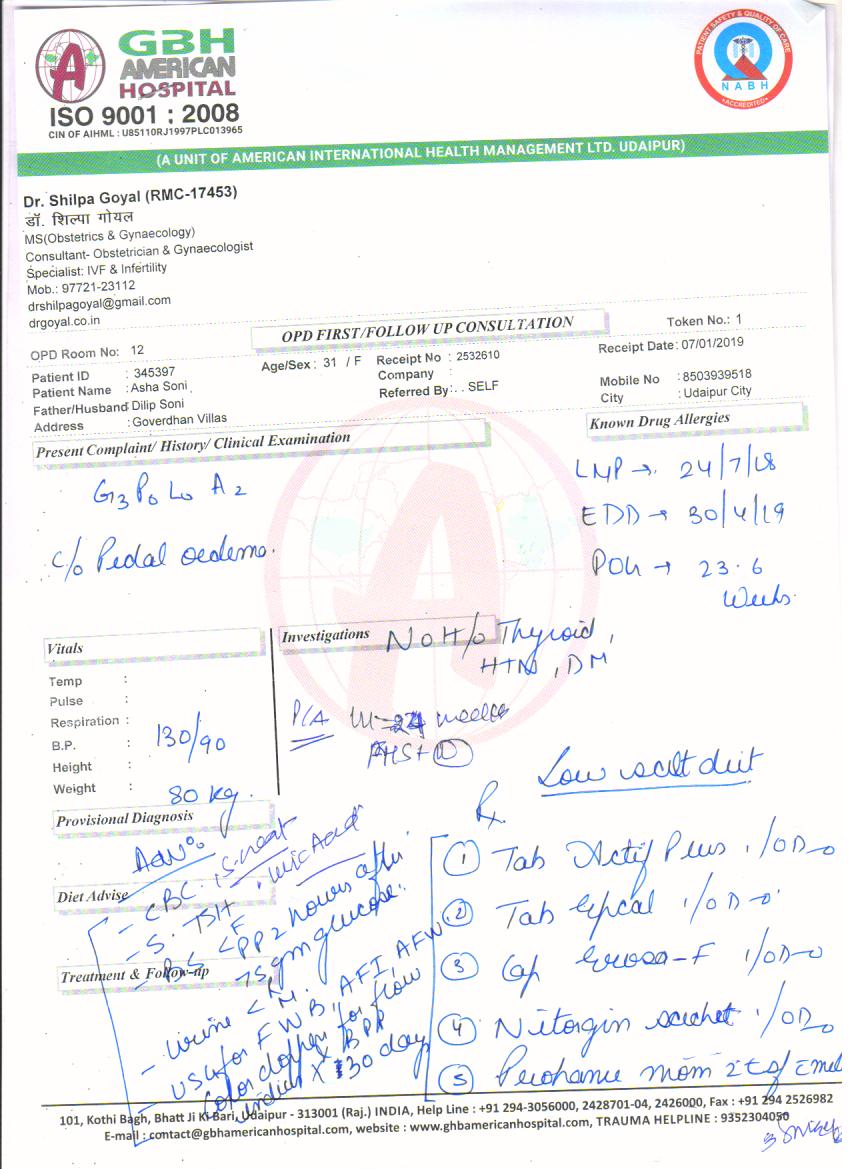 GBH
AMERICAN
HOSPITAL
ISO 9001 : 2008
CIN OF AIHML : U85110RJ1997PLC013965
PATIENT SAFETY & QUALITY OF CARE
NABH
ACCREDITED
(A UNIT OF AMERICAN INTERNATIONAL HEALTH MANAGEMENT LTD. UDAIPUR)
Dr. Shilpa Goyal (RMC-17453)
डॉ. शिल्पा गोयल
MS(Obstetrics & Gynaecology)
Consultant- Obstetrician & Gynaecologist
Specialist: IVF & Infertility
Mob.: 97721-23112
drshilpagoyal@gmail.com
drgoyal.co.in
OPD FIRST/FOLLOW UP CONSULTATION
Token No.: 1
OPD Room No: 12
Receipt Date: 07/01/2019
Patient ID : 345397
Age/Sex : 31 / F
Receipt No : 2532610
Patient Name : Asha Soni
Company :
Mobile No : 8503939518
Father/Husband : Dilip Soni
Referred By: . . SELF
City : Udaipur City
Address : Goverdhan Villas
Known Drug Allergies
Present Complaint/ History/ Clinical Examination
LMP → 24/7/18
G3 P0 L0 A2
EDD → 30/4/19
c/o Pedal oedema.
POG → 23.6
Weeks
Vitals
Investigations
No H/o Thyroid,
HTN, DM
Temp :
Pulse :
Respiration :
B.P. : 130/90
Height :
Weight : 80 kg.
P/A
24 weeks
FHS +
Low salt diet
Rx
Provisional Diagnosis
Adv
Diet Advise
- CBC, S. creat, Uric Acid
- S. TSH
- BS < F
PP 2 hours after
75 gm glucose.
Treatment & Follow-up
- Urine < R
M.
- USG for FWB, AFI, AFW
Color doppler for flow
indices X BPP
X 30 days
1 Tab Actif Plus 1/OD
2 Tab 1/OD
3 Cap 1/OD
4 Nitorgin sachet 1/OD
5 mom
101, Kothi Bagh, Bhatt Ji Ki Bari, Udaipur - 313001 (Raj.) INDIA, Help Line : +91 294-3056000, 2428701-04, 2426000, Fax : +91 294 2526982
E-mail : contact@gbhamericanhospital.com, website : www.gbhamericanhospital.com, TRAUMA HELPLINE : 9352304050